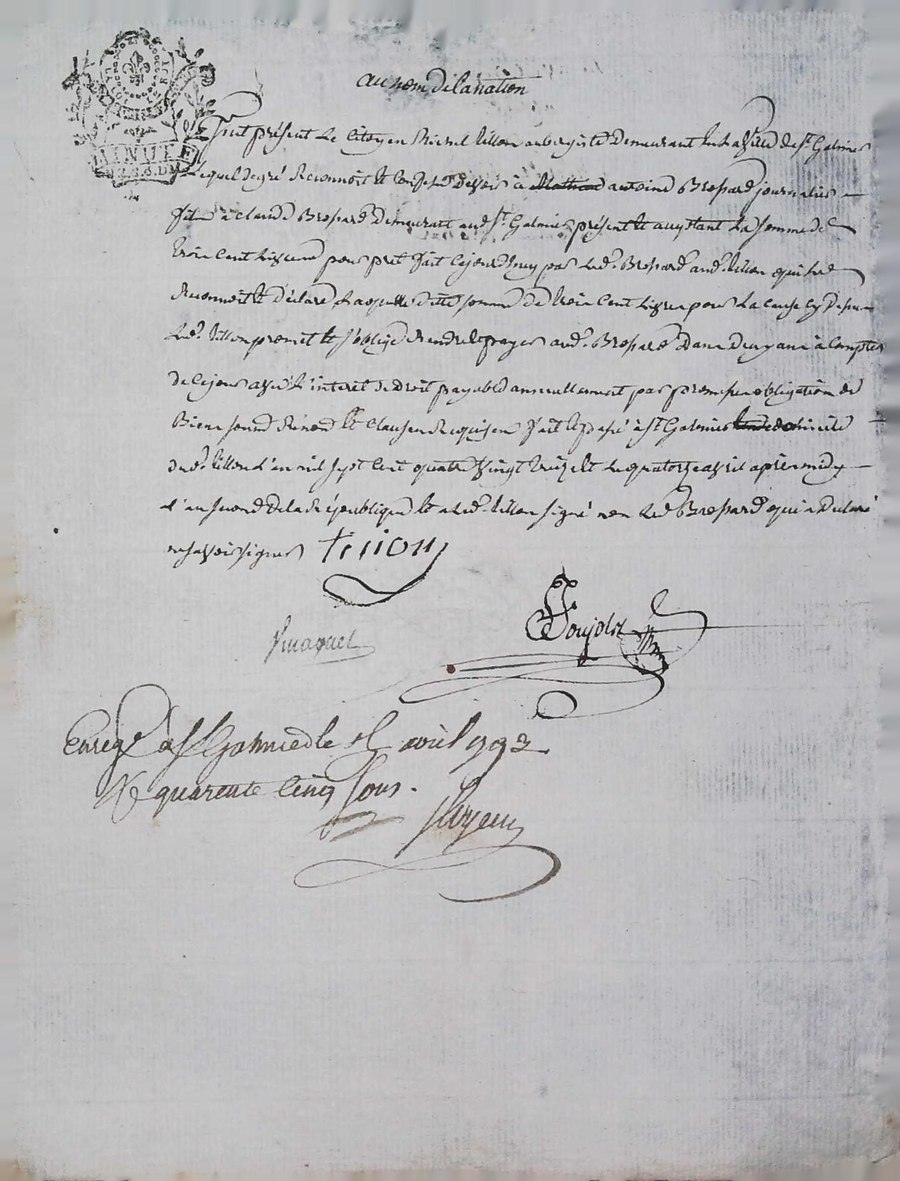 MINUTE
au nom de la nation
fut présent le Citoyen Michel tillon aubergiste demeurant en la ville de st Galmier
lequel de gré reconnoit et confesse devoir à antoine Brossard journalier
fils à claude Brossard demeurant aud. st Galmier présent et acceptant la somme de
trois cent livres pour pret fait cejourdhuy par led. Brossard aud. tillon qui le
reconnoit et déclare laquelle dite somme de trois cent livres pour la cause cy dessus
led. tillon promet et s'oblige rendre et payer aud. Brossard dans deux ans à compter
de ce jour avec l'interet de droit payable annuellement par promesse obligation de
Biens soumis renon et clauses requises fait et passé à st Galmier domicile
dud. tillon l'an mil sept cent quatre vingt treize et le quatorze avril apres midy
l'an second de la république et a led. tillon signé non led. Brossard qui a declaré
ne savoir signer tillon
Enregé a st Galmier le avril 1793
R quarente cinq sous.